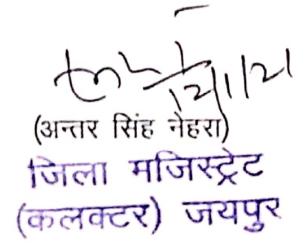 12/1/21
(अन्तर सिंह नेहरा)
जिला मजिस्ट्रेट
(कलक्टर) जयपुर